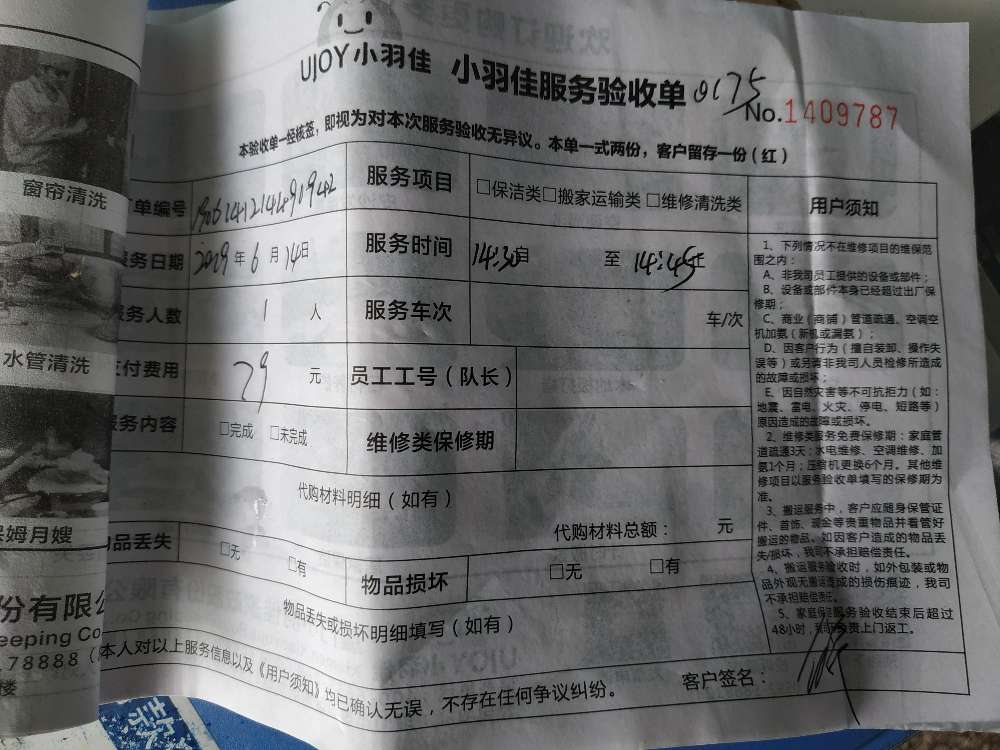 UJOY小羽佳 小羽佳服务验收单 0175
No.1409787
本验收单一经核签，即视为对本次服务验收无异议。本单一式两份，客户留存一份（红）
单编号 19061412144901942 服务项目 □保洁类□搬家运输类□维修清洗类 用户须知
务日期 2019年6月14日 服务时间 14:30自 至 14:45止
务人数 1 人 服务车次 车/次
付费用 29 元 员工工号（队长）
务内容 □完成 □未完成 维修类保修期
代购材料明细（如有）
代购材料总额： 元
品丢失 □无 □有 物品损坏 □无 □有
物品丢失或损坏明细填写（如有）
本人对以上服务信息以及《用户须知》均已确认无误，不存在任何争议纠纷。 客户签名：
1、下列情况不在维修项目的维保范
围之内：
A、非我司员工提供的设备或部件；
B、设备或部件本身已经超过出厂保
修期；
C、商业（商铺）管道疏通、空调空
机加氨（新机或漏氨）；
D、因客户行为（擅自装卸、操作失
误等）或另请非我司人员检修所造成
的故障或损坏；
E、因自然灾害等不可抗拒力（如：
地震、雷电、火灾、停电、短路等）
原因造成的故障或损坏。
2、维修类服务免费保修期：家庭管
道疏通3天；水电维修、空调维修、加
氨1个月；压缩机更换6个月。其他维
修项目以服务验收单填写的保修期为
准。
3、搬运服务中，客户应随身保管证
件、首饰、现金等贵重物品并看管好
搬运的物品。如因客户造成的物品丢
失/损坏，我司不承担赔偿责任。
4、搬运服务验收时，如外包装或物
品外观无搬运造成的损伤痕迹，我司
不承担赔偿责任。
5、家庭保洁服务验收结束后超过
48小时，我司不负责上门返工。
窗帘清洗
水管清洗
保姆月嫂
份有限公
eeping Co
78888（
楼